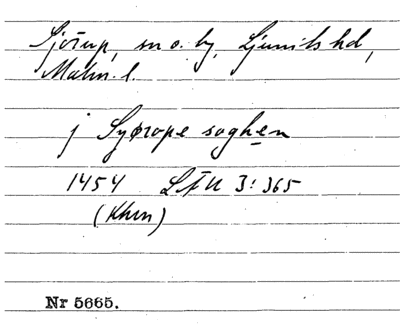 Sjörup, sn o. by, Ljunits hd,
Malm. l.
j Syørope soghen
1454 LFU 3:365
(Khn)
Nr 5665.